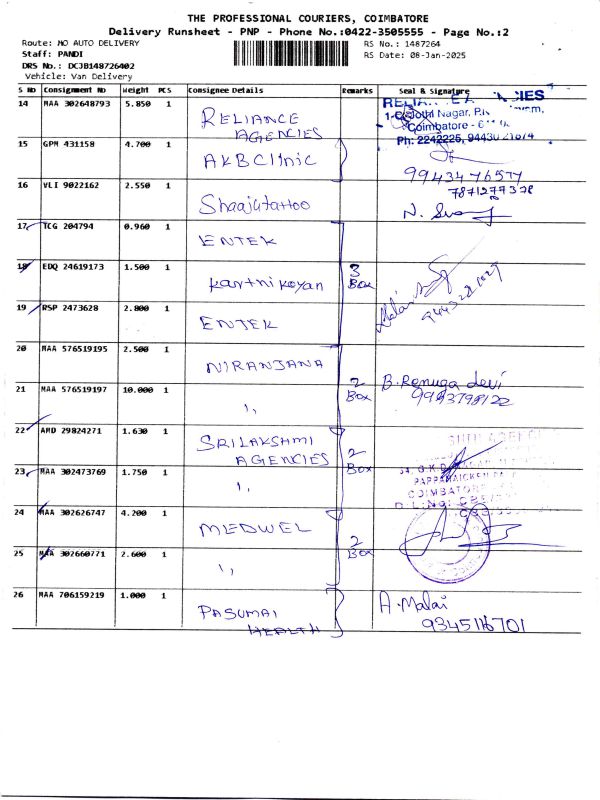 THE PROFESSIONAL COURIERS, COIMBATORE
Delivery Runsheet - PNP - Phone No.:0422-3505555 - Page No.:2
Route: MO AUTO DELIVERY
RS No.: 1487264
Staff: PANDI
RS Date: 08-Jan-2025
DRS No.: DCJB148726402
Vehicle: Van Delivery
S No Consignment No Weight PCS Consignee Details Remarks Seal & Signature
14 MAA 302648793 5.850 1 RELIANCE AGENCIES
1-C, Jothi Nagar, P.N.
Coimbatore -
Ph: 2242225,
15 GPM 431158 4.700 1 AKB Clinic
9943476577
16 VLI 9022162 2.550 1 Shaajutattoo
7871277378
17 TCG 204794 0.960 1 ENTEK
18 EDQ 24619173 1.500 1 Kartnikeyan 3 Box
19 RSP 2473628 2.800 1 ENTEK
20 MAA 576519195 2.500 1 NIRANJANA
21 MAA 576519197 10.000 1 ,, 2 Box B. Renuga devi
9943798122
22 AMD 29824271 1.630 1 SRILAKSHMI AGENCIES 2 Box
23 MAA 302473769 1.750 1 ,,
PAPPANAICKEN
COIMBATORE
24 MAA 302626747 4.200 1 MEDWEL 2 Box
25 MAA 302660771 2.600 1 ,,
26 MAA 706159219 1.000 1 PASUMAI HEALTH A. Malai
9345116701